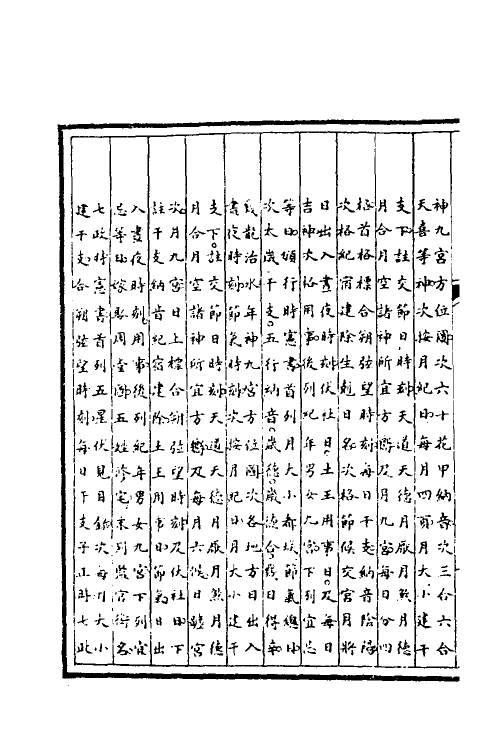 神九宮方位圖次六十花甲納音次三合六合
天喜等神次按月紀日每月四節月大小建干
支下註交節日時刻天道天德月厭月煞月德
月合月空諸神所宜方嚮及月九宮每日分四
格首格標合朔弦望時刻每日干支納音陰陽
次格紀宿建除生剋日名次格節候交宮月將
日出入晝夜時刻伏社日土王用事日及每日
吉神次格用事後列紀年男女九宮下列宜忌
等日頒行時憲書首列月大小都城節氣總日
次太歲干支五行納音歲德歲德合幾日得辛
幾龍治水年神九宮方位圖次各地方日出入
晝夜時刻節氣時刻次按月紀日月大小建干
支下註交節節時刻天道天德月厭月煞月德
月合月空諸神所宜方嚮及每月六候日躔宮
次月九宮日上標合朔弦望時刻及伏社日下
註干支納音紀宿建除土王用事日節氣日出
入晝夜時刻用事後列紀年男女九宮下列宜
忌等日嫁娶周堂圖五姓修宅末列監官銜名
七政時憲書首列五星伏見目錄次每月大小
建干支合朔弦望時刻每日下支子正時七政